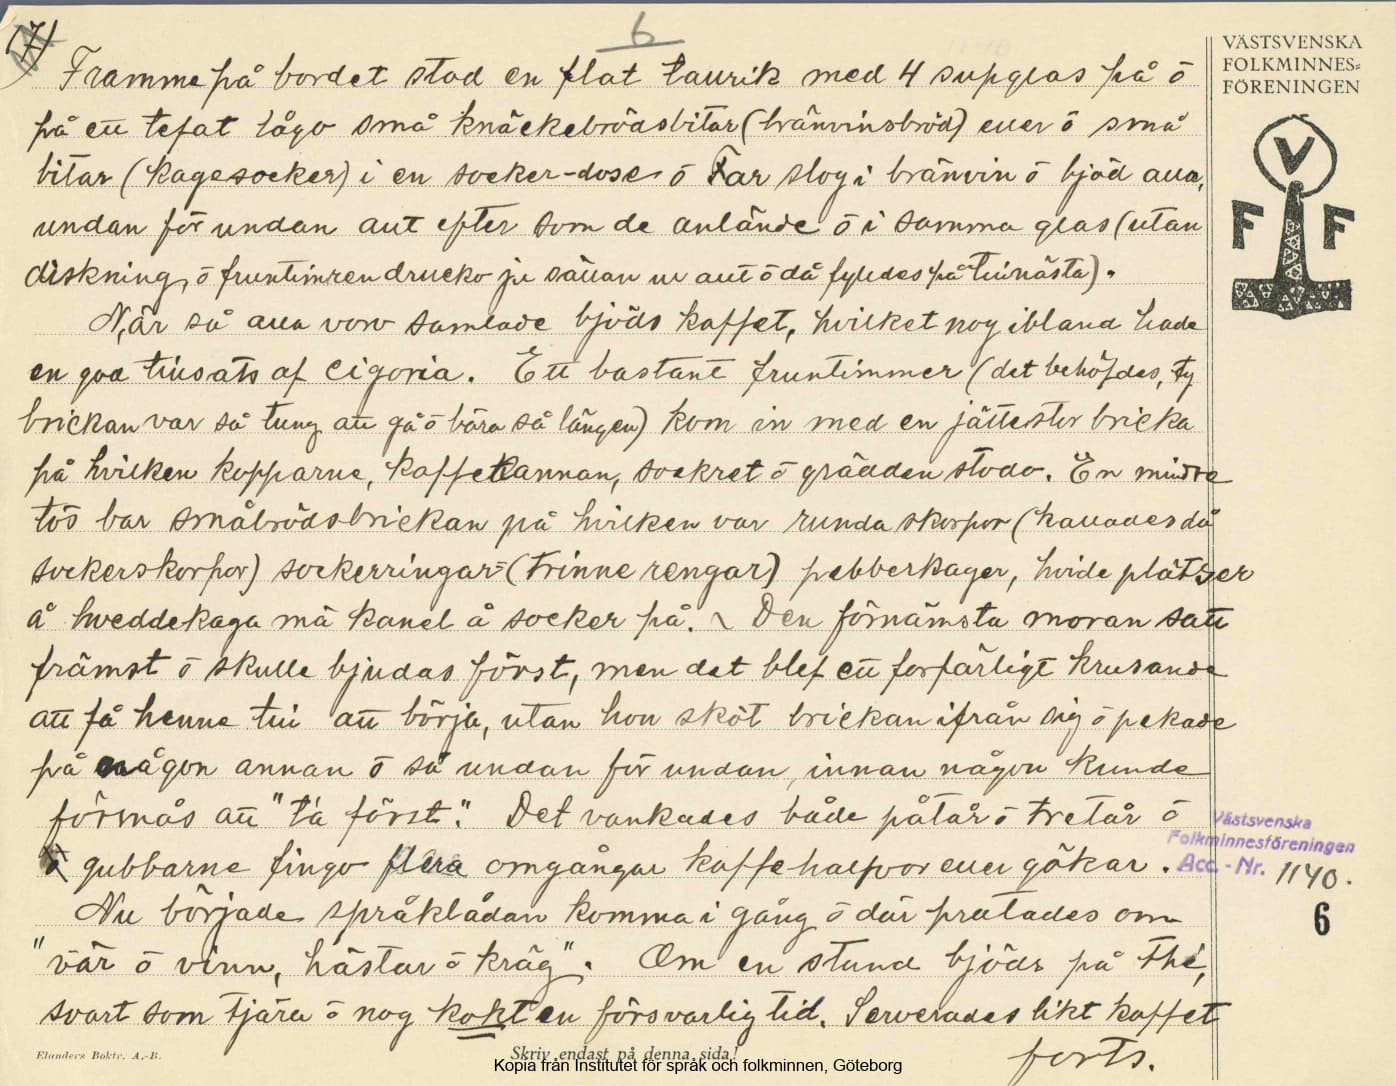 6
Framme på bordet stod en flat taurik med 4 supglas på ō
på ett tefat lågo små knäckebrödsbitar (bränvinsbröd) eller ō små
bitar (kagesocker) i en socker-dose ō Far slog i bränvin ō bjöd alla,
undan för undan allt efter som de anlände ō i samma glas (utan
diskning, ō fruntimren drucko ju sällan ur allt ō då fylldes på till nästa).
När så alla voro samlade bjöds kaffet, hvilket nog ibland hade
en god tillsats af cigoria. Ett bastant fruntimmer (det behöfdes, ty
brickan var så tung att gå ō bära så längen) kom in med en jättestor bricka
på hvilken kopparne, kaffekannan, sockret ō grädden stodo. En mindre
tös bar småbrödsbrickan på hvilken var runda skorpor (kallades då
sockerskorpor) sockerringar=(trinne rengar) pebberkager, hvide plätzer
å hveddekaga mä kanel å socker på. Den förnämsta moran satt
främst ō skulle bjudas först, men det blef ett forfärligt krusande
att få henne till att börja, utan hon sköt brickan ifrån sig ō pekade
på någon annan ō så undan för undan, innan någon kunde
förmås att "ta först". Det vankades både påtår ō tretår ō
gubbarne fingo flera omgångar kaffehalfvor eller gökar.
Nu började språklådan komma i gång ō där pratades om
"vär ō vinn, hästar ō kräg". Om en stund bjöds på thé,
svart som tjära ō nog kokt en försvarlig tid. Serverades likt kaffet
forts.
VÄSTSVENSKA
FOLKMINNES=
FÖRENINGEN
V
F F
Västsvenska
Folkminnesföreningen
Acc.-Nr. 1140.
6
Elanders Boktr. A.-B.
Skriv endast på denna sida!
Kopia från Institutet för språk och folkminnen, Göteborg